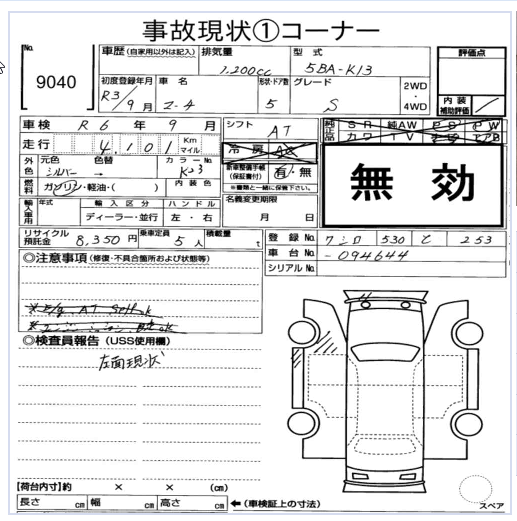 事故現状①コーナー
No. 9040
車歴(自家用以外は記入) 排気量 1,200cc 型式 5BA-K13
評価点
初度登録年月 R3/9月 車名 ノート 形状・ドア数 5 グレード S 2WD・4WD
内装補助評価
車検 R6年9月 シフト AT
純正品 SR 純AW PS PW
カワ TV エアB
走行 4,101 Km マイル 冷房 AC
無効
外色 元色 シルバー 色替 → カラーNo. K23
新車整備手帳(保証書付) 有・無
※書類と一緒に保管下さい。
燃料 ガソリン・軽油・( ) 内装色
名義変更期限 月 日
輸入車用 年式 輸入区分 ハンドル
ディーラー・並行 左・右
リサイクル預託金 8,350円 乗車定員 5人 積載量 t
登録No. 530 253
車台No. -094644
シリアルNo.
◎注意事項(修復・不具合箇所および状態等)
※E/g AT
◎検査員報告(USS使用欄)
左面現状
【荷台内寸】約 × × (cm)
長さ cm 幅 cm 高さ cm ←(車検証上の寸法)
スペア